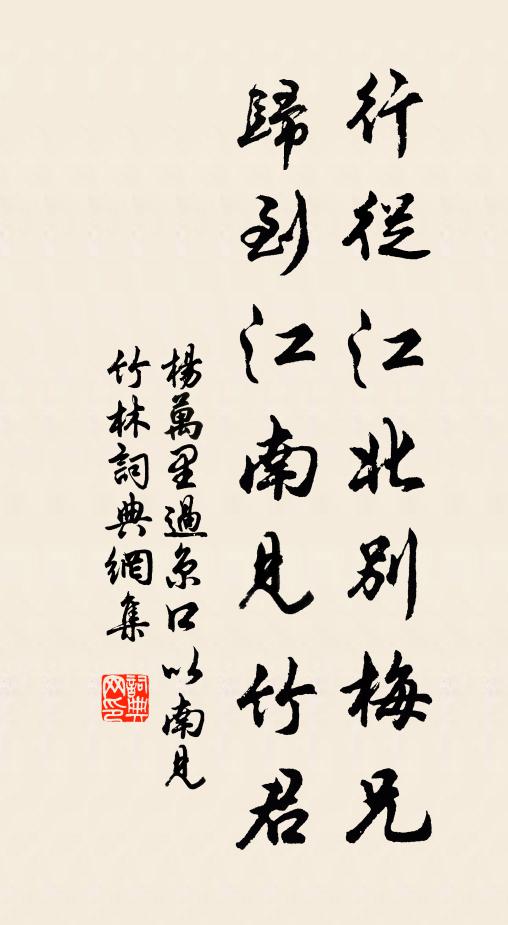 行從江北別梅兄
歸到江南見竹君
楊萬里過京口以南見
竹林詞典網集
詞典
网印